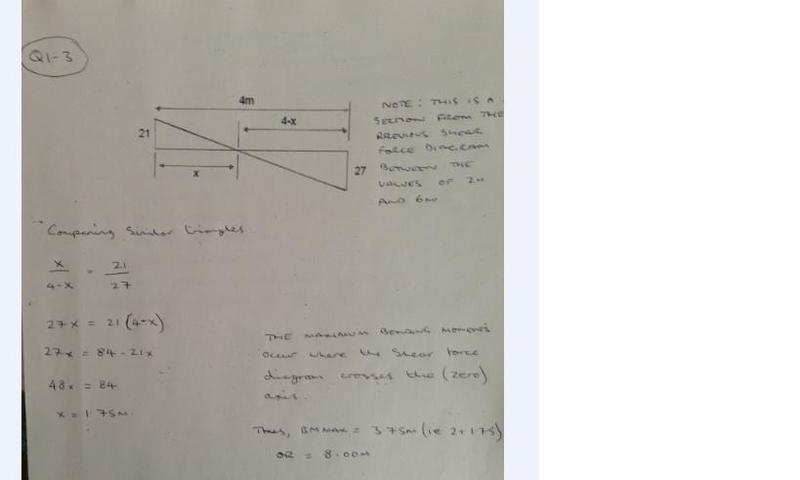 Q1-3
4m
4-x
21
x
27
NOTE: THIS IS A
SECTION FROM THE
PREVIOUS SHEAR
FORCE DIAGRAM
BETWEEN THE
VALUES OF 2m
AND 6m
Comparing similar triangles
x/4-x = 21/27
27x = 21(4-x)
27x = 84-21x
48x = 84
x = 1.75m.
THE MAXIMUM BENDING MOMENTS
occur where the shear force
diagram crosses the (zero)
axis.
Thus, BM MAX = 3.75m (ie 2+1.75)
OR = 8.00m